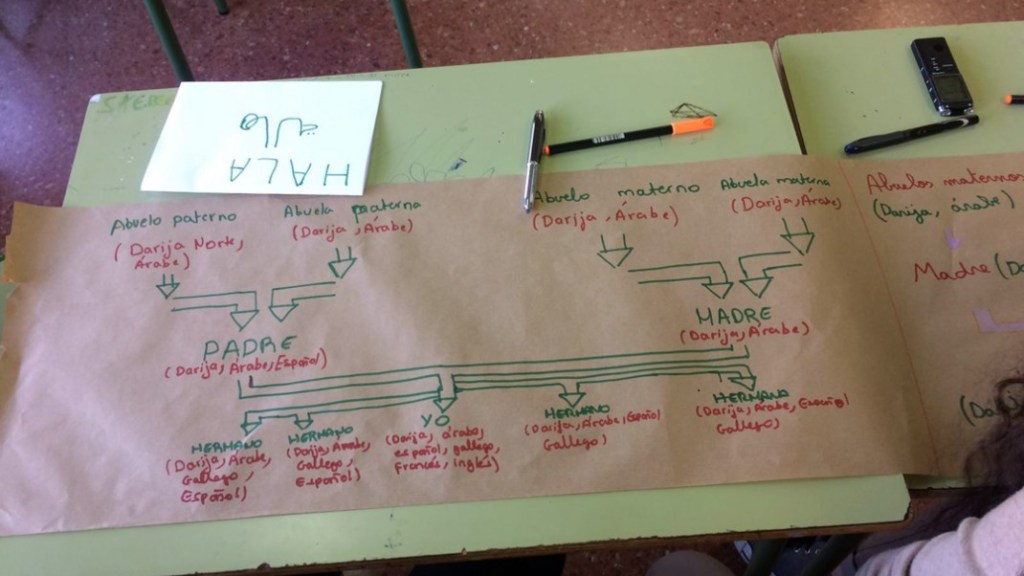 HALA
هالة
Abuelo paterno
(Darija Norte,
Árabe)
Abuela paaterna
(Darija, Árabe)
Abuelo materno
(Darija, Árabe)
Abuela materna
(Darija, Árabe)
PADRE
(Darija, Árabe, Español)
MADRE
(Darija, Árabe)
HERMANO
(Darija, Árabe,
Gallego,
Español)
HERMANO
(Darija, Árabe,
Gallego,
Español)
YO
(Darija, árabe,
español, gallego,
Francés, inglés)
HERMANO
(Darija, Árabe, Español
Gallego)
HERMANO
(Darija, Árabe, Español
Gallego)
Abuelos maternos
(Darija, árabe)
Madre (Da
(Da